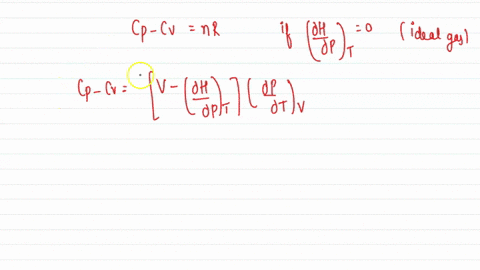 Cp-Cv = nR if (∂H/∂P)_T = 0 (ideal gas)
Cp-Cv = [V - (∂H/∂P)_T] (∂P/∂T)_V